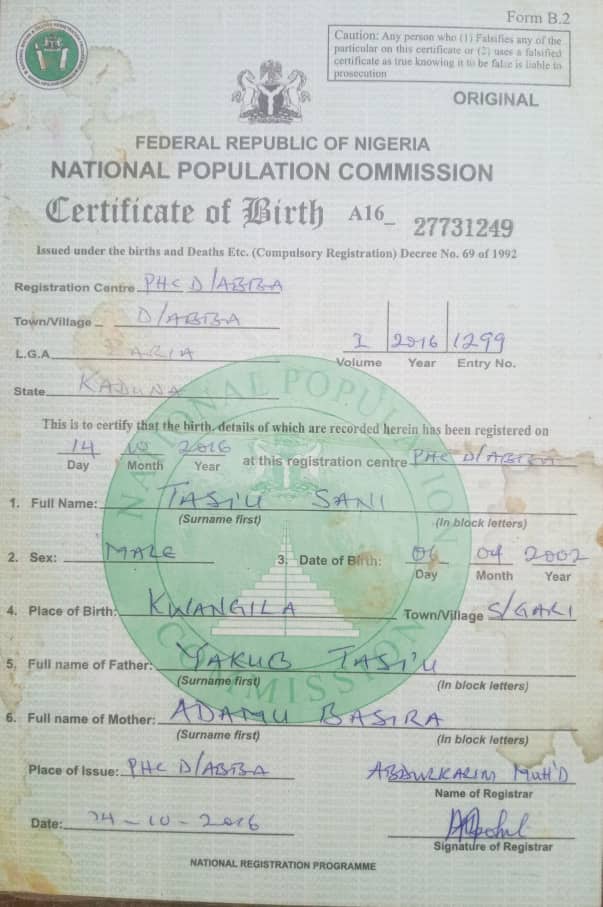 Form B.2
Caution: Any person who (1) Falsifies any of the
particular on this certificate or (2) uses a falsified
certificate as true knowing it to be false is liable to
prosecution
ORIGINAL
FEDERAL REPUBLIC OF NIGERIA
NATIONAL POPULATION COMMISSION
Certificate of Birth A16_ 27731249
Issued under the births and Deaths Etc. (Compulsory Registration) Decree No. 69 of 1992
Registration Centre PHC D/ABBA
Town/Village D/ABBA
L.G.A ARIA
I 2016 1299
Volume Year Entry No.
State KADUNA
This is to certify that the birth, details of which are recorded herein has been registered on
14 10 2016 at this registration centre PHC D/ABBA
Day Month Year
1. Full Name: TASI'U SANI
(Surname first) (In block letters)
2. Sex: MALE 3. Date of Birth: 06 04 2002
Day Month Year
4. Place of Birth: KWANGILA Town/Village S/GARI
5. Full name of Father: YAKUB TASI'U
(Surname first) (In block letters)
6. Full name of Mother: ADAMU BASIRA
(Surname first) (In block letters)
Place of Issue: PHC D/ABBA ABDULKARIM MUH'D
Name of Registrar
Date: 14-10-2016
Signature of Registrar
NATIONAL REGISTRATION PROGRAMME
NATIONAL POPULATION COMMISSION